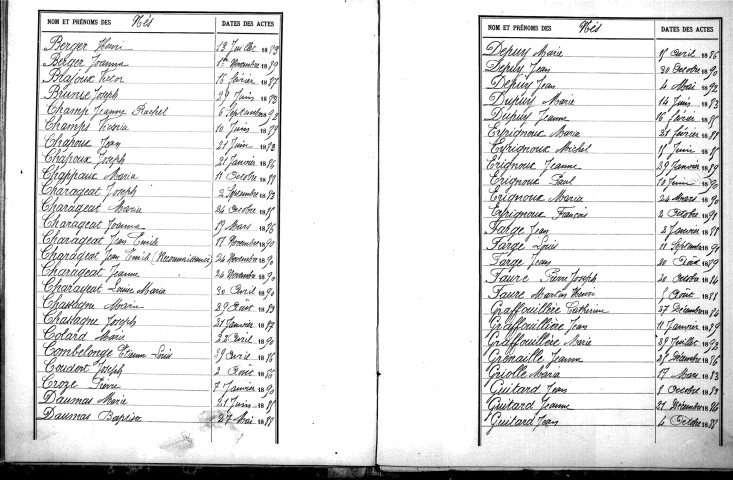 NOM ET PRÉNOMS DES Nés DATES DES ACTES
Berger Henri 13 Juillet 1883
Berger Joanna 1er Novembre 1889
Blajoux Victor 16 février 1887
Brunie Joseph 29 Juin 1883
Champ Jeanne Rachel 6 Septembre 1892
Champs Maria 10 Juin 1889
Chapoux Jean 21 Juin 1883
Chapoux Joseph 21 Janvier 1886
Chappaux Maria 11 Octobre 1888
Charageat Joseph 2 Septembre 1883
Charageat Maria 24 Octobre 1885
Charageat Joanna 17 Mars 1886
Charageat Jean Emile 17 Novembre 1890
Charageat Jean Emile (Reconnaissance) 24 Novembre 1890
Charageat Jeanne 24 Novembre 1890
Charageat Louise Maria 20 Avril 1890
Chassagne Marie 29 Août 1883
Chassagne Joseph 21 Janvier 1887
Colard Marie 22 Avril 1890
Combelonge Etienne Louis 29 Avril 1886
Coudort Joseph 2 Août 1886
Croze Pierre 7 Janvier 1890
Daumas Marie 21 Juin 1885
Daumas Baptiste 27 Mai 1888
NOM ET PRÉNOMS DES Nés DATES DES ACTES
Depuy Marie 15 Avril 1886
Depuy Jean 30 Octobre 1890
Depuy Jean 4 Mai 1892
Dupuy Marie 14 Juin 1883
Dupuy Jeanne 16 février 1885
Eyrignoux Maria 21 février 1885
Eyrignoux Michel 15 Juin 1885
Erignoux Jeanne 29 Janvier 1889
Erignoux Paul 10 Juin 1890
Erignoux Maria 24 Mars 1890
Eyrignoux François 2 Octobre 1891
Farge Jean 2 Janvier 1888
Farge Louis 11 Septembre 1891
Farge Jean 20 Août 1889
Faure Pierre Joseph 20 Octobre 1884
Faure Martin Henri 5 Août 1888
Graffouillère Catherine 27 Décembre 1884
Graffouillère Jean 11 Janvier 1889
Graffouillère Marie 29 Juillet 1892
Grenaille Jeanne 25 Décembre 1886
Griolle Maria 17 Mars 1883
Guitard Jean 8 Octobre 1883
Guitard Jeanne 21 Décembre 1886
Guitard Jean 4 Octobre 1888